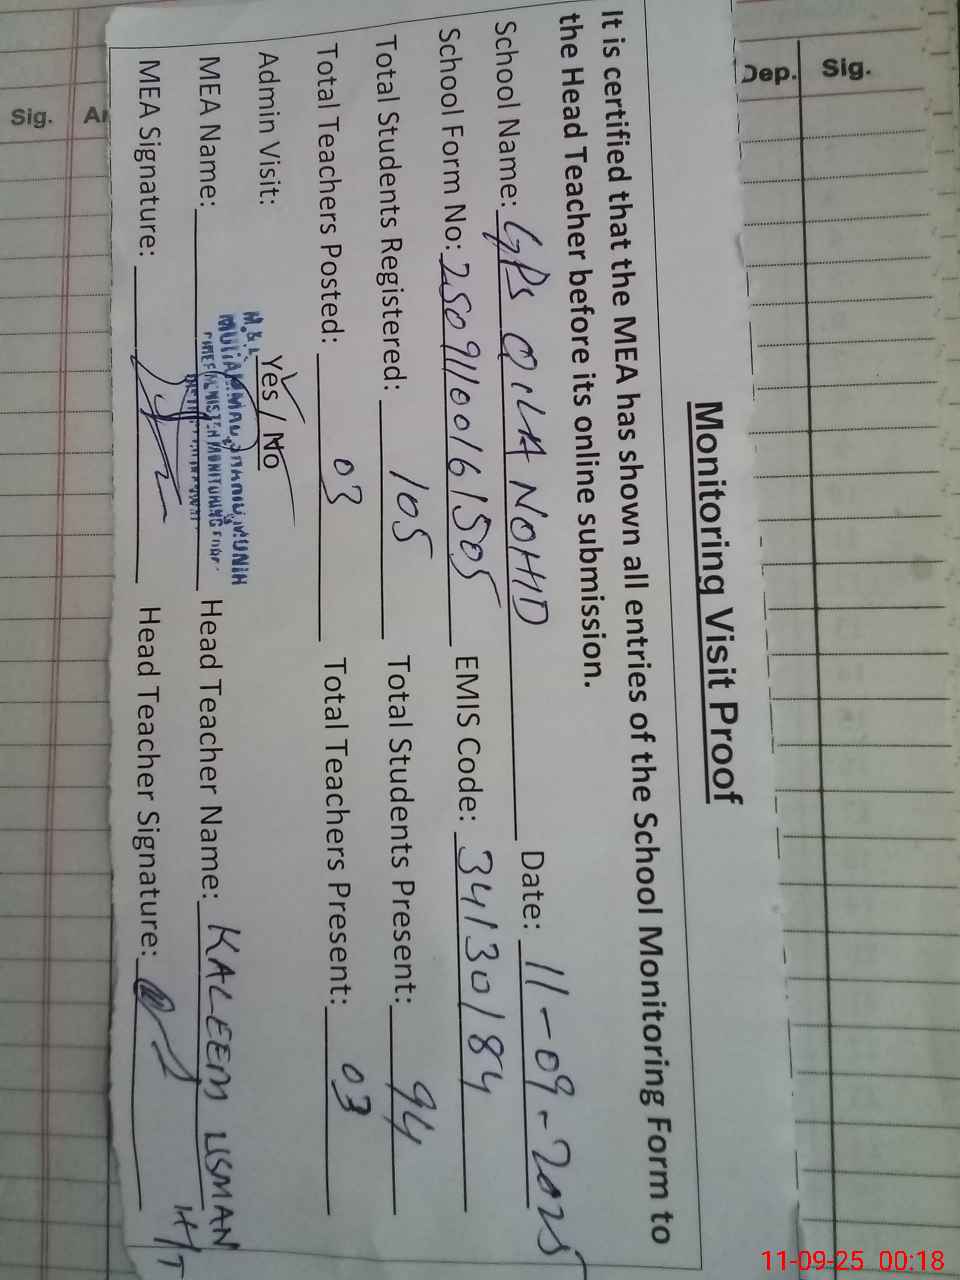 Dep. Sig.
Monitoring Visit Proof
It is certified that the MEA has shown all entries of the School Monitoring Form to
the Head Teacher before its online submission.
School Name: GPS Date: 11-09-2025
School Form No: 25091100161505 EMIS Code: 34130184
Total Students Registered: 105 Total Students Present: 94
Total Teachers Posted: 03 Total Teachers Present: 03
Admin Visit: Yes / No
MEA Name: Head Teacher Name: KALEEM USMAN
MEA Signature: Head Teacher Signature: H/T
Sig.
11-09-25 00:18